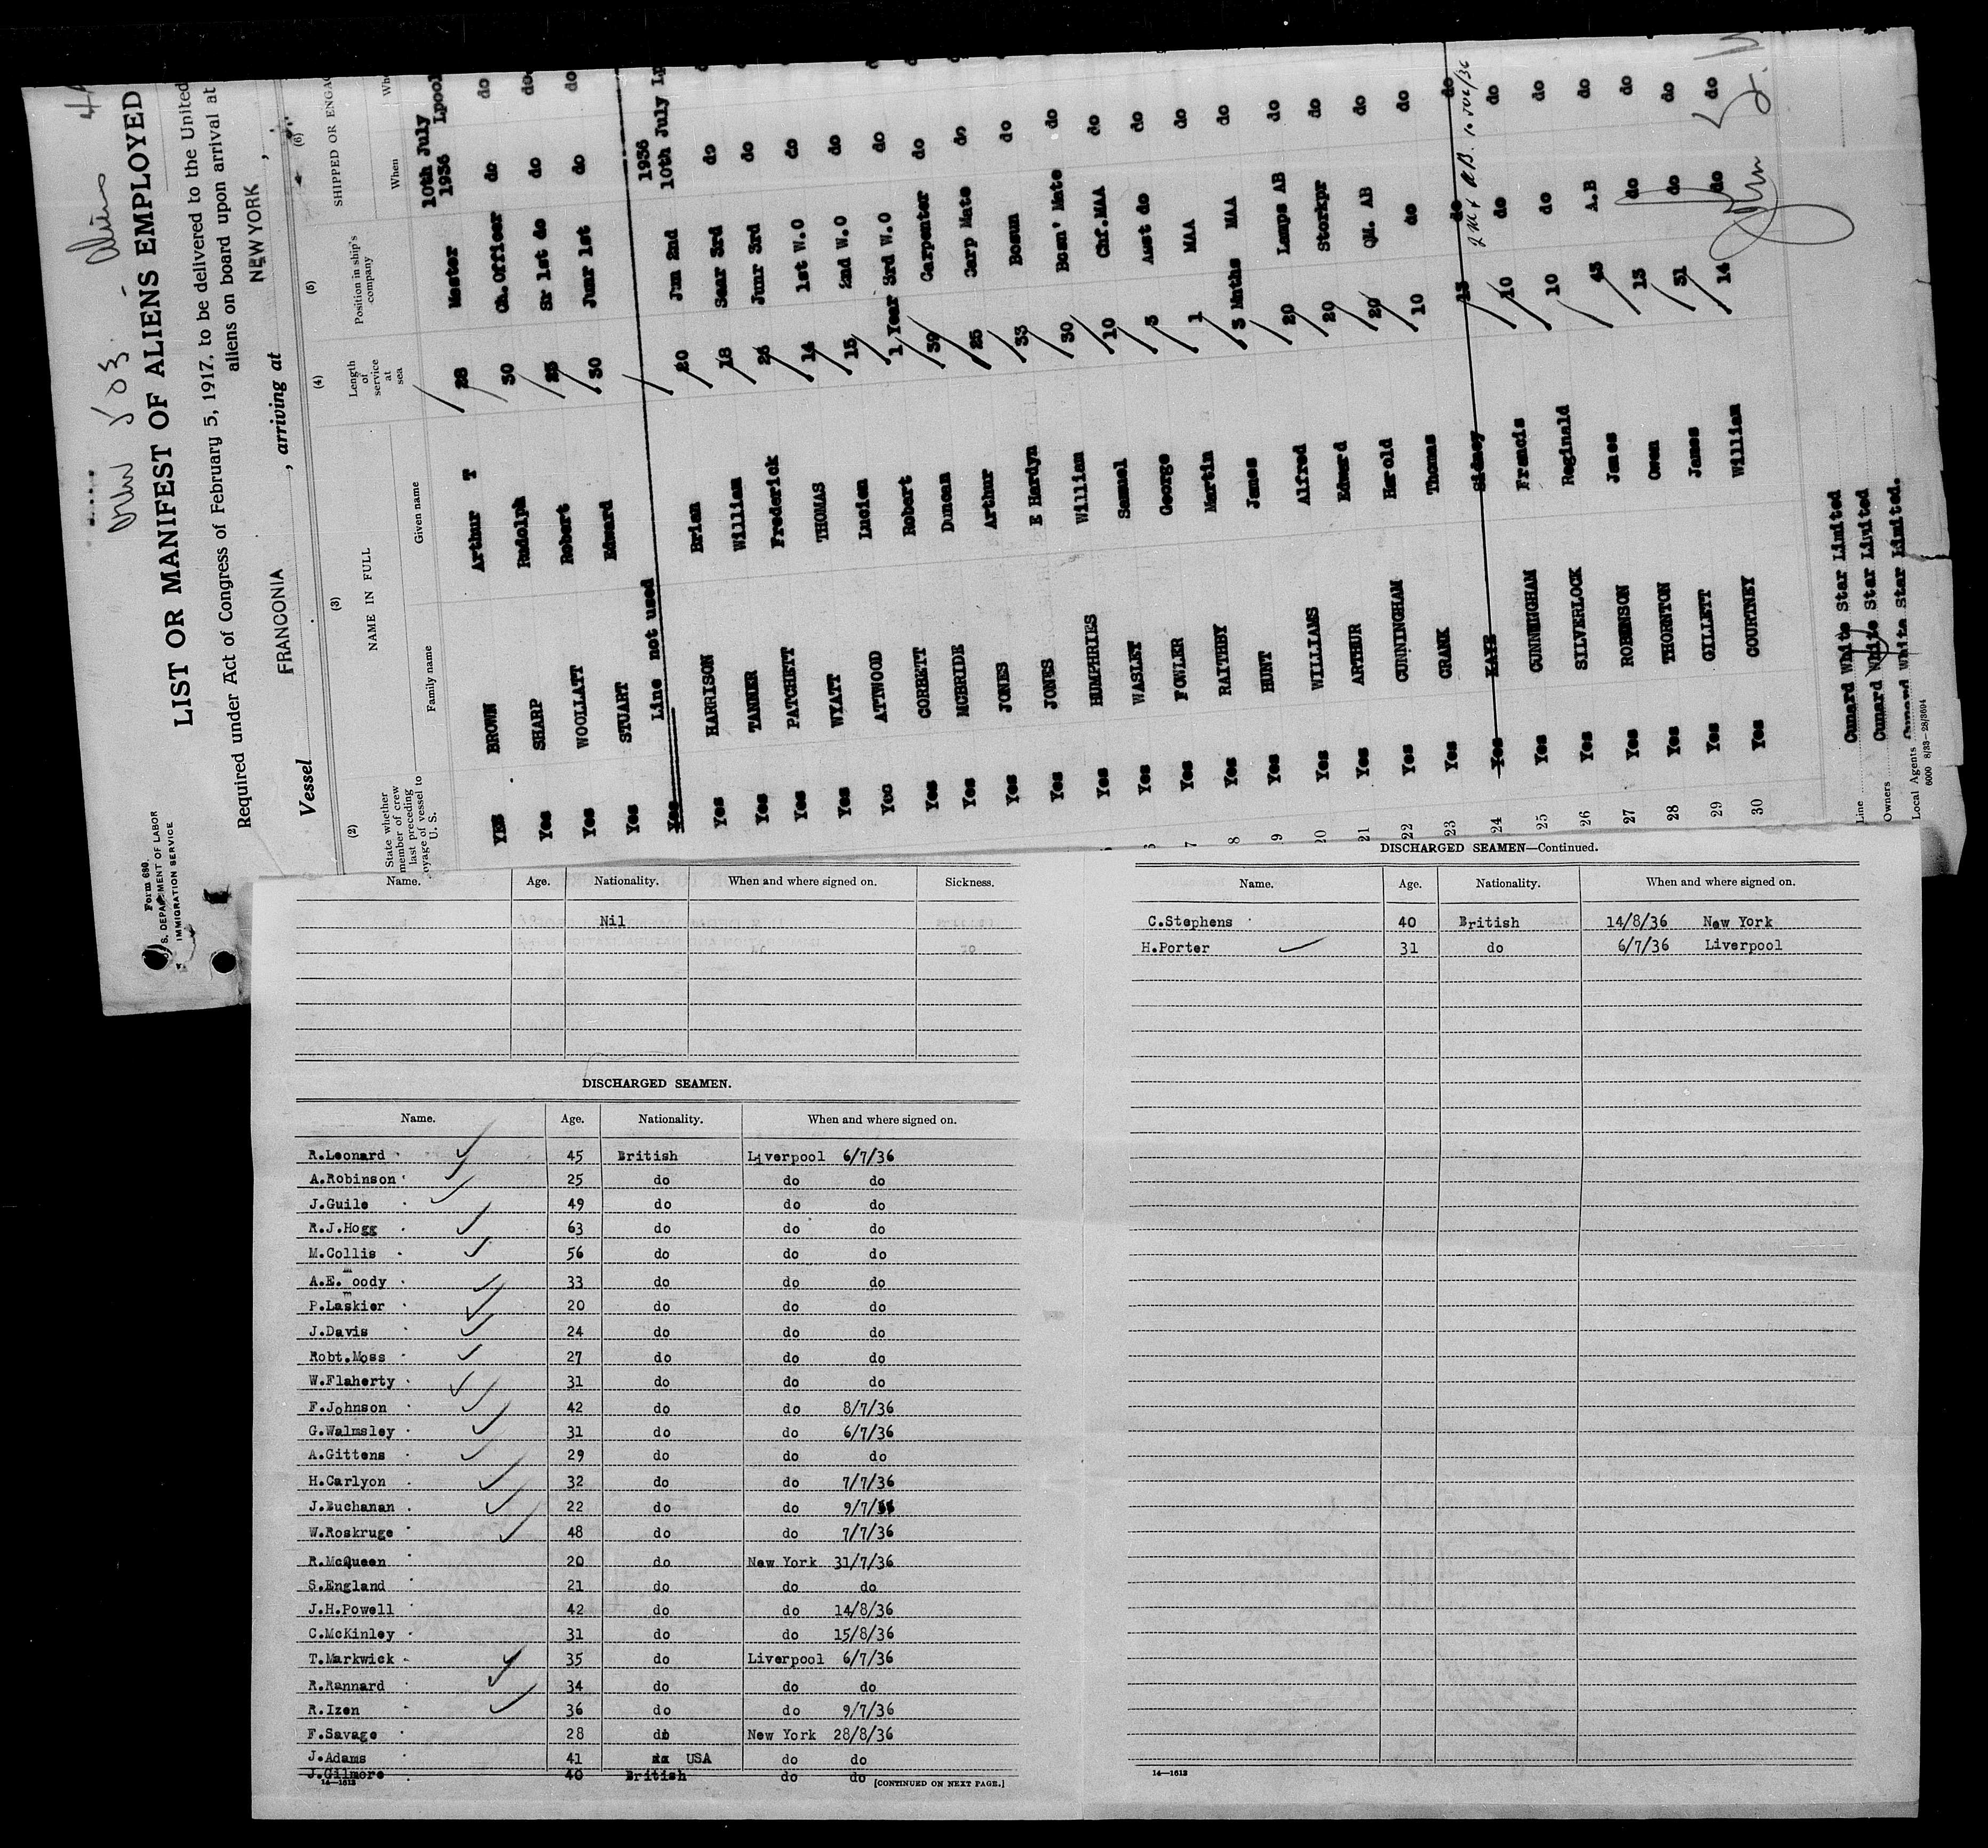 Form 680.
S. DEPARTMENT OF LABOR
IMMIGRATION SERVICE
LIST OR MANIFEST OF ALIENS EMPLOYED
Required under Act of Congress of February 5, 1917, to be delivered to the United
aliens on board upon arrival at
Vessel FRANCONIA, arriving at NEW YORK,
(2) (3) (4) (5) (6)
State whether member of crew last preceding voyage of vessel to U. S.
NAME IN FULL
Family name Given name
Length of service at sea
Position in ship's company
SHIPPED OR ENGA
When Wh
YES BROWN Arthur T 28 Master 10th July 1936 Lpool
Yes SHARP Rudolph 30 Ch.Officer do do
Yes WOOLLATT Robert 25 Sr 1st do do do
Yes STUART Edward 30 Junr 1st do do
Yes Line not used
Yes HARRISON Brian 20 Jun 2nd 1936 10th July Lp
Yes TANNER William 18 Senr 3rd do
Yes PATCHETT Frederick 26 Junr 3rd do
Yes WYATT THOMAS 14 1st W.O do
Yes ATTWOOD Lucien 15 2nd W.O do
Yes CORBETT Robert 1 Year 3rd W.O do
Yes MCBRIDE Duncan 39 Carpenter do
Yes JONES Arthur 25 Carp Mate do
Yes JONES E Hardyn 33 Bosun do
Yes HUMPHRIES William 30 Bosn' Mate do
Yes WASLEY Samuel 10 Chf.MAA do
Yes FOWLER George 3 Asst do do
Yes RAITHBY Martin 1 MAA do
8 Yes HUNT James 3 Mnths MAA do
9 Yes WILLIAMS Alfred 20 Lamps AB do
20 Yes ARTHUR Edward 20 Storkpr do
21 Yes CUNNINGHAM Harold 20 QM. AB do
22 Yes CRANK Thomas 10 do do
23 Yes KAYE Sidney 13 do do
24 Yes CUNNINGHAM Francis 10 do do
25 Yes SILVERLOCK Reginald 10 do do
26 Yes ROBINSON James 45 A.B do
27 Yes THORNTON Owen 13 do do
28 Yes GILLETT James 31 do do
29 Yes COURTNEY William 14 do do
30 Yes
Line Cunard White Star Limited
Owners Cunard White Star Limited
Local Agents Cunard White Star Limited.
6000 8/33—28/3694
Name. Age. Nationality. When and where signed on. Sickness.
Nil
DISCHARGED SEAMEN.
Name. Age. Nationality. When and where signed on.
R.Leonard 45 British Liverpool 6/7/36
A.Robinson 25 do do do
J.Guile 49 do do do
R.J.Hogg 63 do do do
M.Collis 56 do do do
A.E. oody 33 do do do
P.Laskier 20 do do do
J.Davis 24 do do do
Robt.Moss 27 do do do
W.Flaherty 31 do do do
F.Johnson 42 do do 8/7/36
G.Walmsley 31 do do 6/7/36
A.Gittens 29 do do do
H.Carlyon 32 do do 7/7/36
J.Buchanan 22 do do 9/7/36
W.Roskruge 48 do do 7/7/36
R.McQueen 20 do New York 31/7/36
S.England 21 do do do
J.H.Powell 42 do do 14/8/36
C.McKinley 31 do do 15/8/36
T.Markwick 35 do Liverpool 6/7/36
R.Rannard 34 do do do
R.Izen 36 do do 9/7/36
F.Savage 28 do New York 28/8/36
J.Adams 41 USA do do
J.Gilmore 40 British do do
14—1613
[CONTINUED ON NEXT PAGE.]
DISCHARGED SEAMEN—Continued.
Name. Age. Nationality. When and where signed on.
C.Stephens 40 British 14/8/36 New York
H.Porter 31 do 6/7/36 Liverpool
14—1613